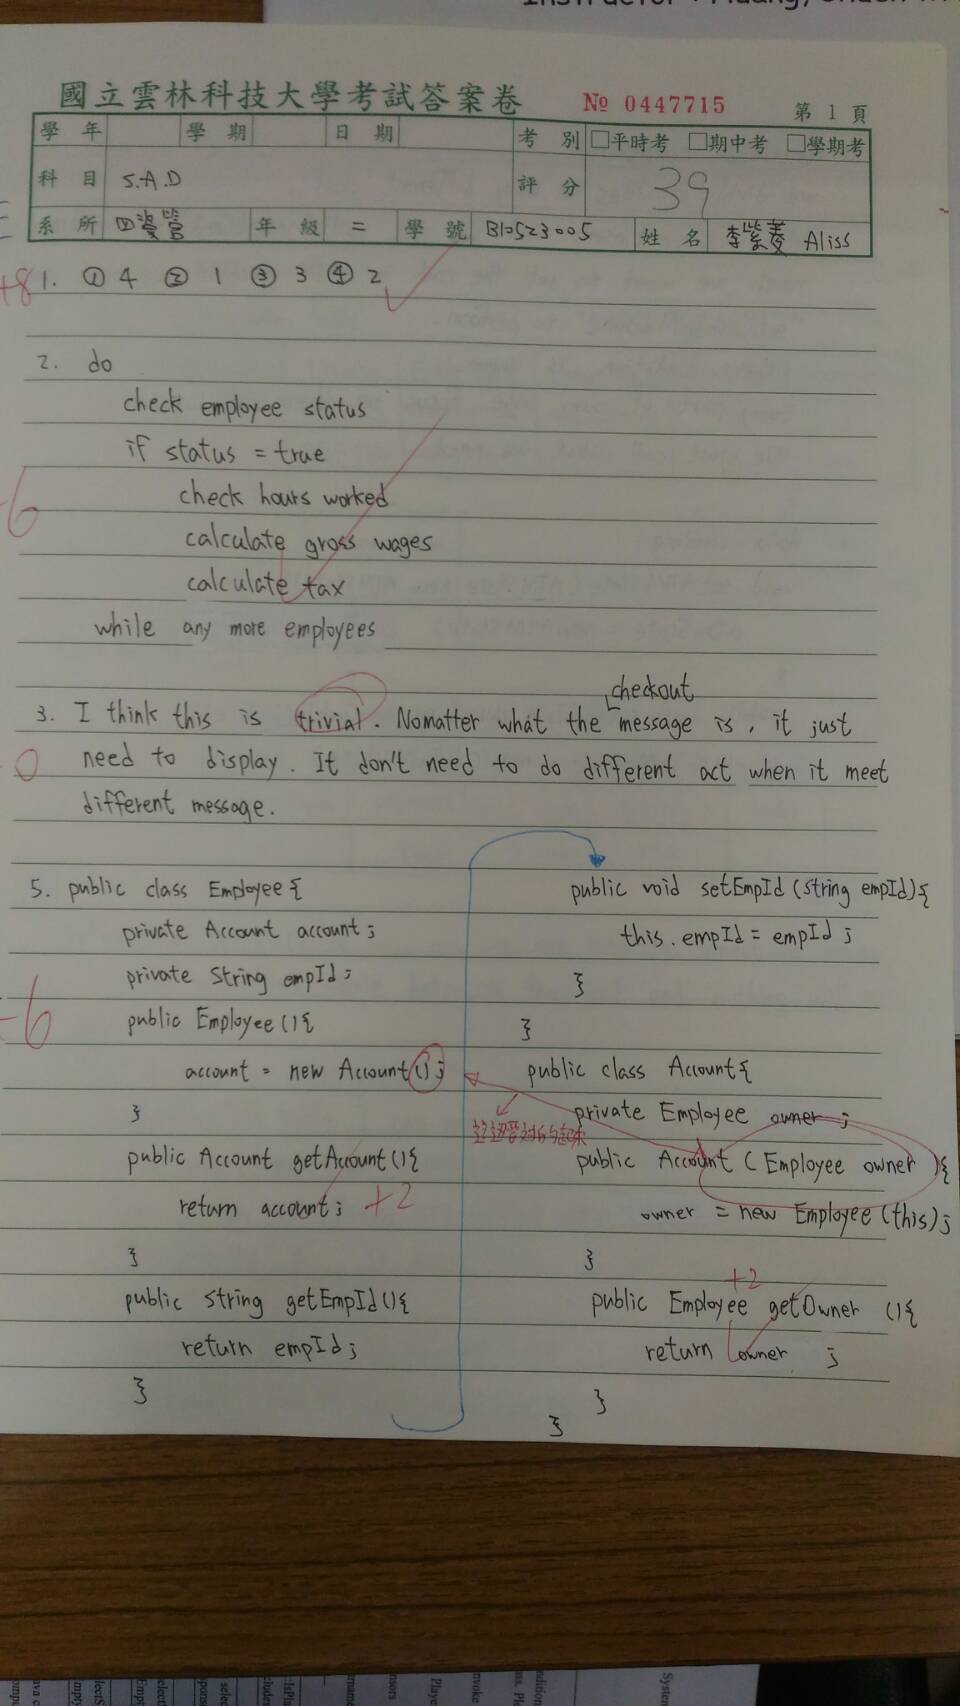 國立雲林科技大學考試答案卷 № 0447715 第 1 頁
學 年 學 期 日 期 考 別 □平時考 □期中考 □學期考
科 目 S.A.D 評 分 39
系 所 四資管 年 級 二 學 號 B10523005 姓 名 李紫菱 Aliss
+8 1. ① 4 ② 1 ③ 3 ④ 2
2. do
check employee status
if status = true
check hours worked
calculate gross wages
calculate tax
while any more employees
checkout
3. I think this is trivial. Nomatter what the message is, it just
need to display. It don't need to do different act when it meet
different message.
5. public class Employee {
private Account account;
private String empId;
public Employee () {
account = new Account();
}
public Account getAccount () {
return account; +2
}
public String getEmpId () {
return empId;
}
public void setEmpId (String empId) {
this.empId = empId ;
}
}
public class Account {
private Employee owner ;
public Account ( Employee owner ) {
owner = new Employee (this);
}
+2
public Employee getOwner () {
return owner ;
}
}